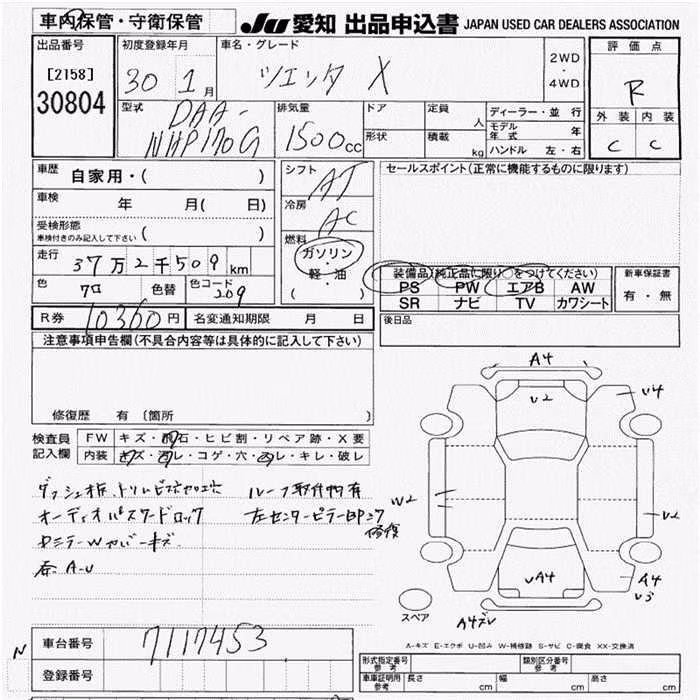 車内保管・守衛保管
JU 愛知 出品申込書 JAPAN USED CAR DEALERS ASSOCIATION
出品番号
[2158]
30804
初度登録年月
30 1月
車名・グレード
シエンタ X
2WD
・
4WD
評価点
R
外装 内装
C C
型式
DAA-
NHP170G
排気量
1500cc
ドア
定員 人
形状
積載 kg
ディーラー・並行
モデル年式 年
ハンドル 左・右
車歴
自家用・( )
車検
年 月( 日)
受検形態
車検付きのみ記入して下さい ( )
走行
37万2千509km
色
クロ
色替
色コード
209
シフト
AT
冷房
AC
燃料
ガソリン
・
軽・油
( )
セールスポイント(正常に機能するものに限ります)
装備品(純正品に限り○をつけてください)
PS PW エアB AW
SR ナビ TV カワシート
新車保証書
有・無
後日品
R券 10360円 名変通知期限 月 日
注意事項申告欄(不具合内容等は具体的に記入して下さい)
修復歴 有 〔箇所 〕
検査員
記入欄
FW キズ・飛石・ヒビ割・リペア跡・X要
内装 キズ・汚レ・コゲ・穴・スレ・キレ・破レ
ダッシュ板、トリムビス穴加工穴
ルーフ取付物有
オーディオパスワードロック
左センターピラー
修復
ドアミラーWカバーキズ
A-U
A4
U2
U4
W2
U2
UA4
A4
U3
A4ズレ
スペア
A-キズ E-エクボ U-凹み W-補修跡 S-サビ C-腐食 XX-交換済
N
車台番号
7117453
登録番号
形式指定番号
参考
類別区分番号
参考
車庫証明用
参考
長さ cm
幅 cm
高さ cm